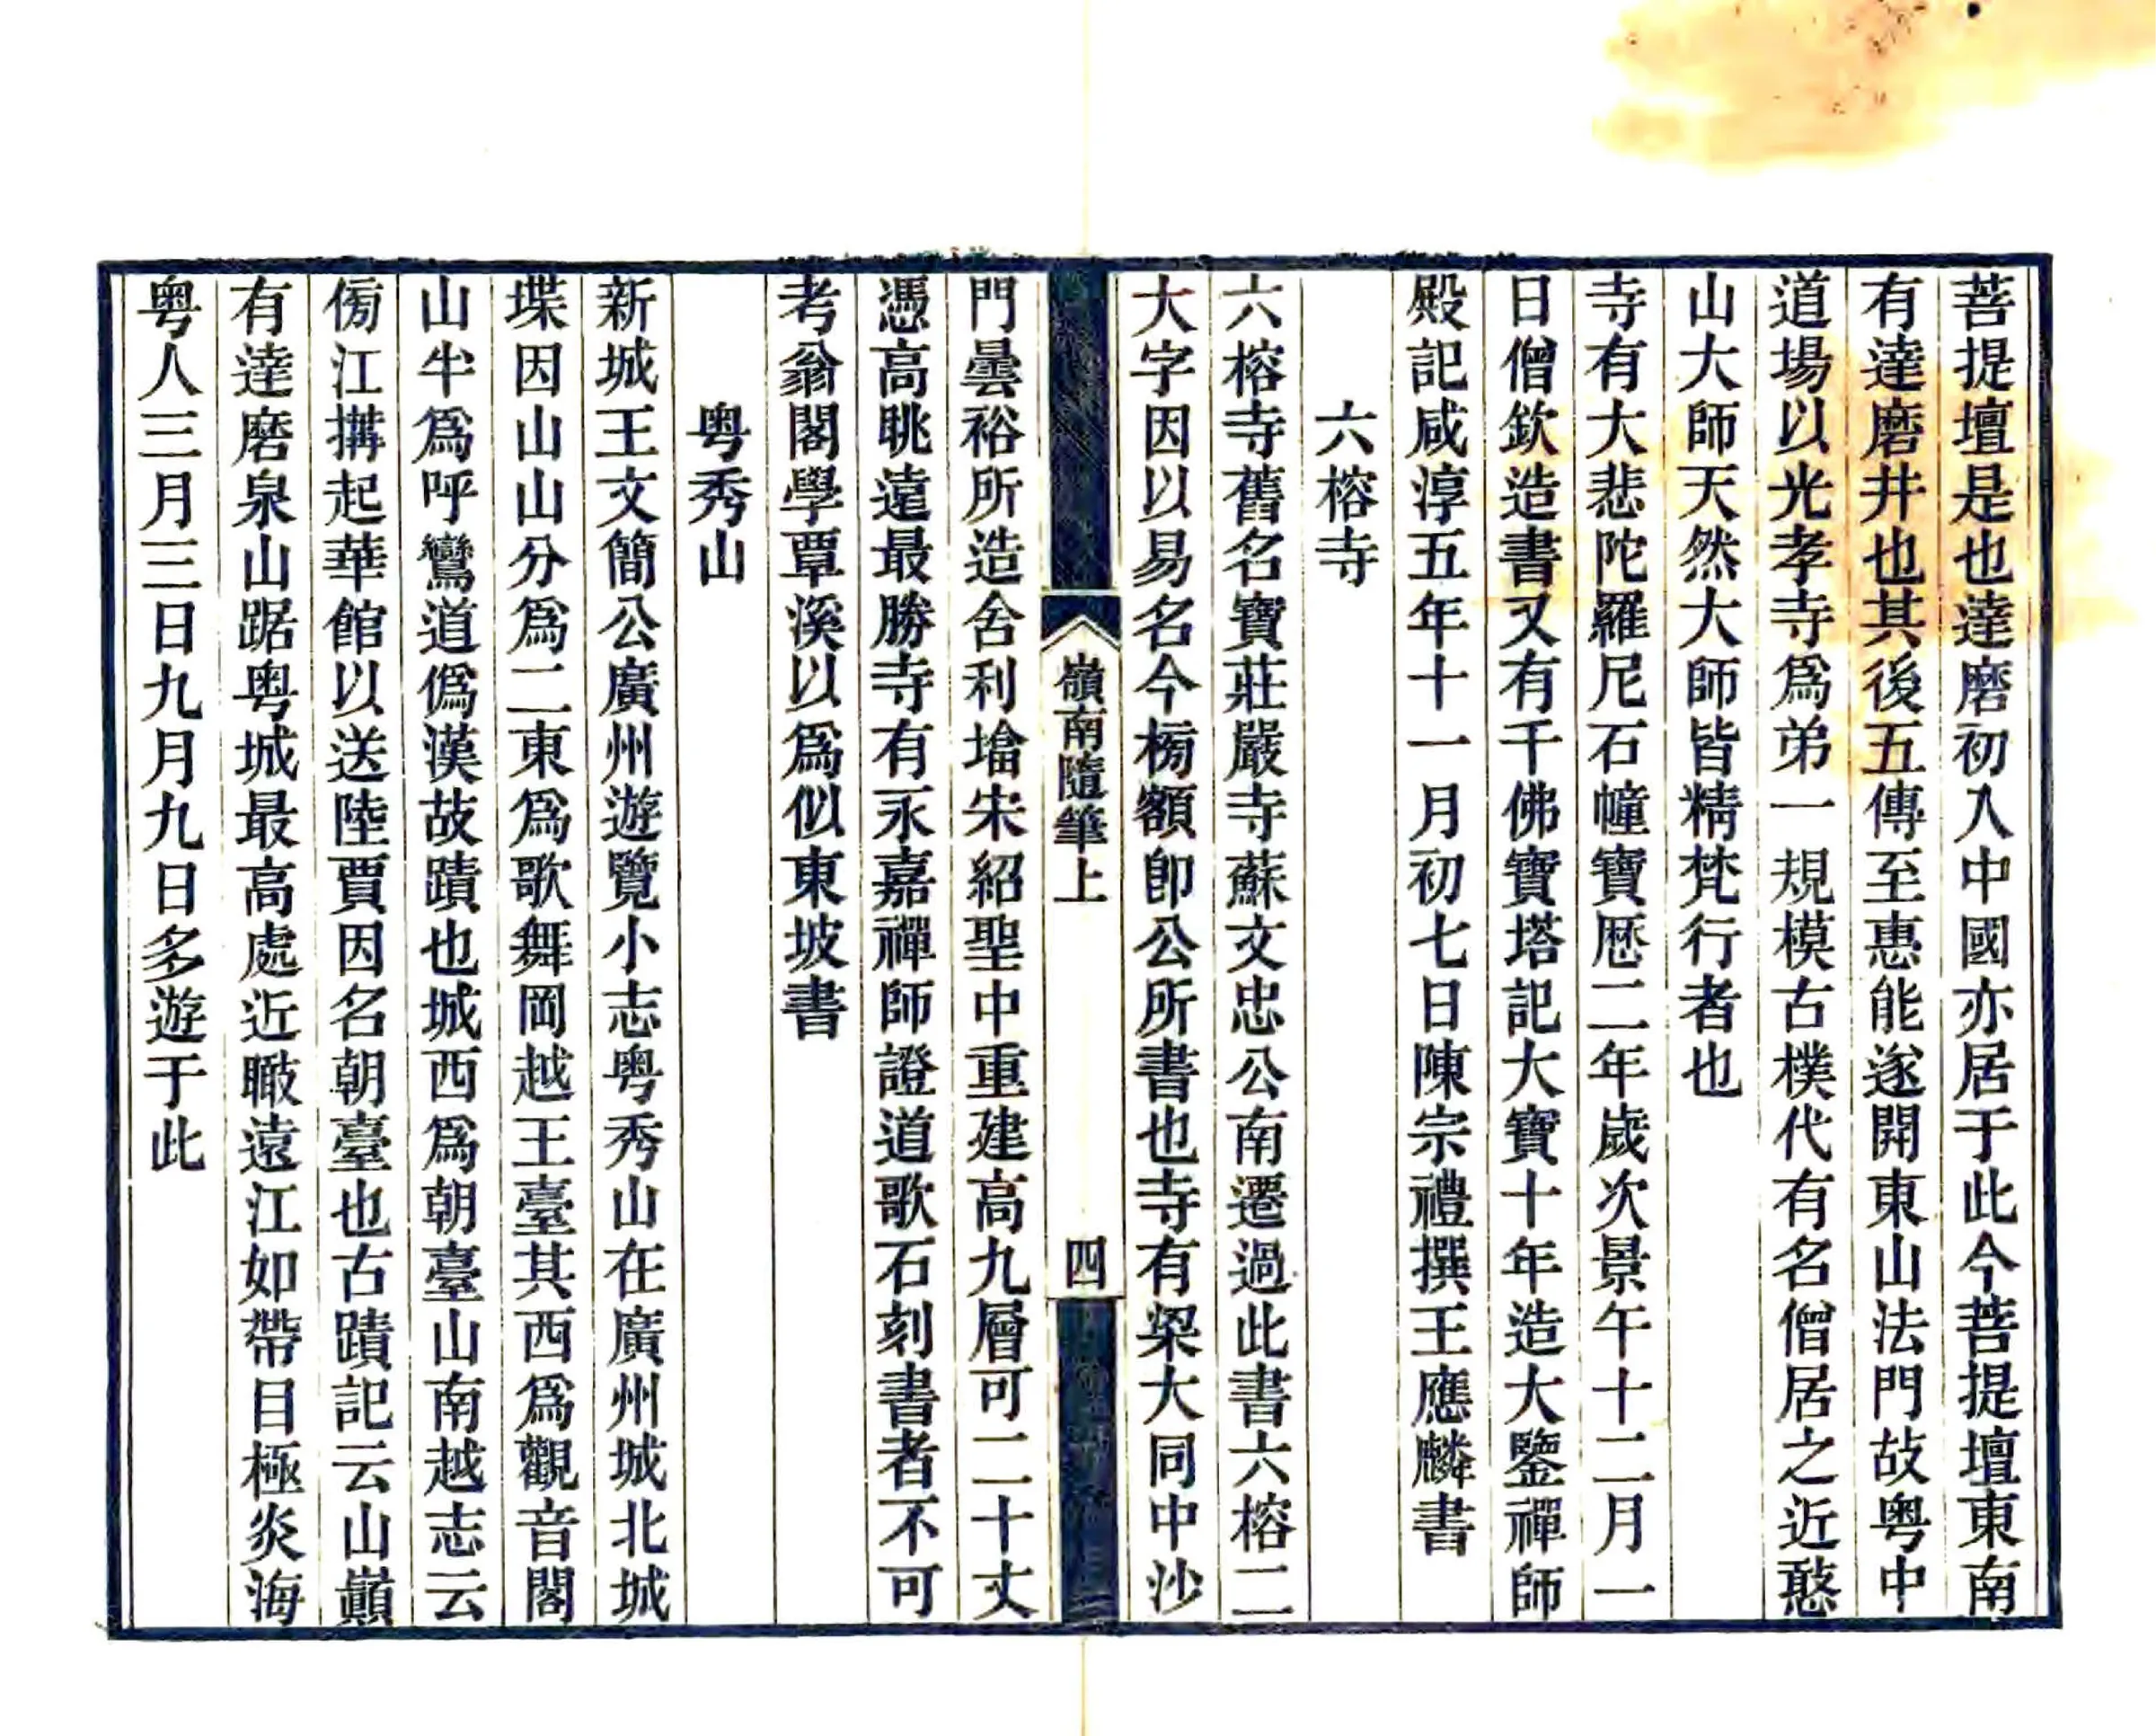 菩提壇是也達磨初入中國亦居于此今菩提壇東南
有達磨井也其後五傳至惠能遂開東山法門故粤中
道場以光孝寺爲弟一規模古樸代有名僧居之近憨
山大師天然大師皆精梵行者也
寺有大悲陀羅尼石幢寶歷二年歲次景午十二月一
日僧欽造書又有千佛寶塔記大寶十年造大鑒禪師
殿記咸淳五年十一月初七日陳宗禮撰王應麟書
六榕寺
六榕寺舊名寶莊嚴寺蘇文忠公南遷過此書六榕二
大字因以易名今榜額卽公所書也寺有梁大同中沙
嶺南隨筆上
四
門曇裕所造舍利墖宋紹聖中重建高九層可二十丈
憑高眺遠最勝寺有永嘉禪師證道歌石刻書者不可
考翁閣學覃溪以爲似東坡書
粤秀山
新城王文簡公廣州遊覽小志粤秀山在廣州城北城
堞因山山分爲二東爲歌舞岡越王臺其西爲觀音閣
山半爲呼鸞道僞漢故蹟也城西爲朝臺山南越志云
傍江搆起華館以送陸賈因名朝臺也古蹟記云山巔
有達磨泉山踞粤城最高處近瞰遠江如帶目極炎海
粤人三月三日九月九日多遊于此